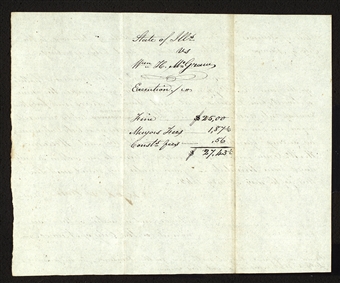 State of Ills.
vs
Wm. H. McGraw
Execution, &c.
Fine $25,00
Mayors Fees 1,87½
Const. fees .56
$ 27,43½